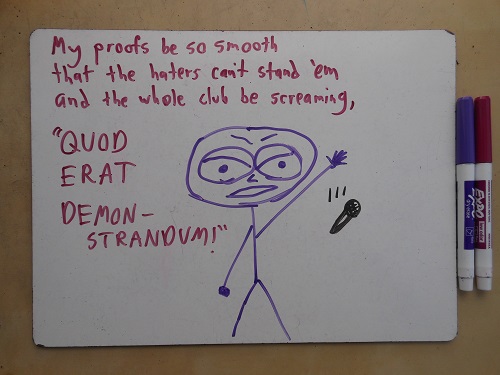 My proofs be so smooth
that the haters can't stand 'em
and the whole club be screaming,
"QUOD
ERAT
DEMON-
STRANDUM!"
EXPO